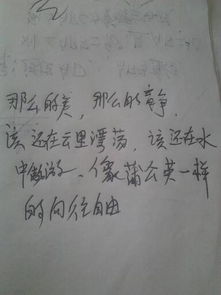 那么的美，那么的静，
该还在云里漂荡，该还在水
中敖游、像蒲公英一样
的向往自由